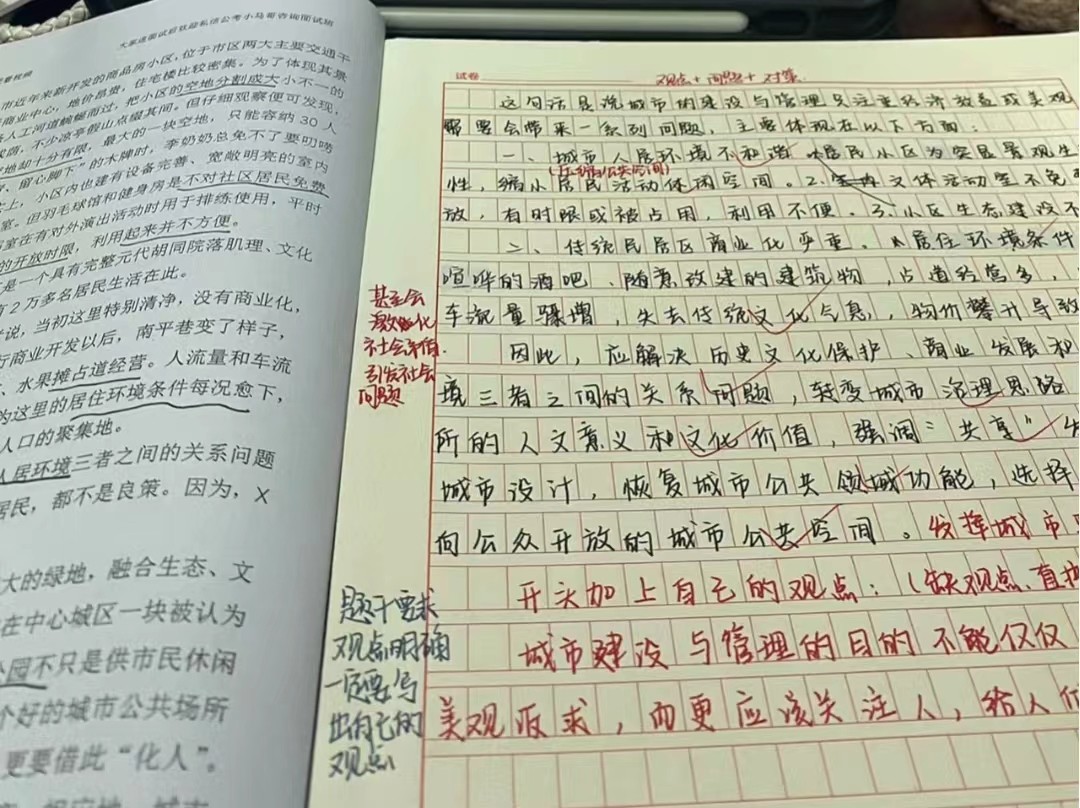 大家进面试后欢迎私信公考小马哥咨询面试班
市近年来新开发的商品房小区,位于市区两大主要交通干
商业中心,地价昂贵,住宅楼比较密集。为了体现其景
人工河道蜿蜒而过,把小区的空地分割成大小不一的
不少凉亭假山点缀其间。但仔细观察便可发现,
地却十分有限,最大的一块空地,只能容纳30人
留心脚下”的木牌时,李奶奶总免不了要叨唠
上,小区内也建有设备完善、宽敞明亮的室内
室。但羽毛球馆和健身房是不对社区居民免费
室在有对外演出活动时用于排练使用,平时
的开放时限,利用起来并不方便。
是一个具有完整元代胡同院落肌理、文化
有2万多名居民生活在此。
说,当初这里特别清净,没有商业化,
行商业开发以后,南平巷变了样子,
、水果摊占道经营。人流量和车流
为这里的居住环境条件每况愈下,
人口的聚集地。
人居环境三者之间的关系问题
居民,都不是良策。因为,X
大的绿地,融合生态、文
在中心城区一块被认为
公园不只是供市民休闲
个好的城市公共场所
更要借此“化人”。
试卷
观点+问题+对策
这句话是说城市的建设与管理只注重经济效益或美观
需要会带来一系列问题,主要体现在以下方面:
一、城市人居环境不和谐 1.居民小区为突显景观生
(压缩公共空间)
性,缩小居民活动休闲空间。2.文体活动室不免
放,有时限或被占用,利用不便。3.小区生态建设不
二、传统民居区商业化严重。1.居住环境条件
喧哗的酒吧、随意改建的建筑物,占道经营多,
车流量骤增,失去传统文化气息,物价攀升导致
因此,应解决历史文化保护、商业发展和
境三者之间的关系问题,转变城市治理思路
所的人文意义和文化价值,强调“共享”
城市设计,恢复城市公共领域功能,选择
向公众开放的城市公共空间。发挥城市
开头加上自己的观点:(缺观点、直接
城市建设与管理的目的不能仅仅
美观诉求,而更应该关注人,给人们
甚至会
激化
社会矛盾
引发社会
问题
题干要求
观点明确
一定要写
出自己的
观点